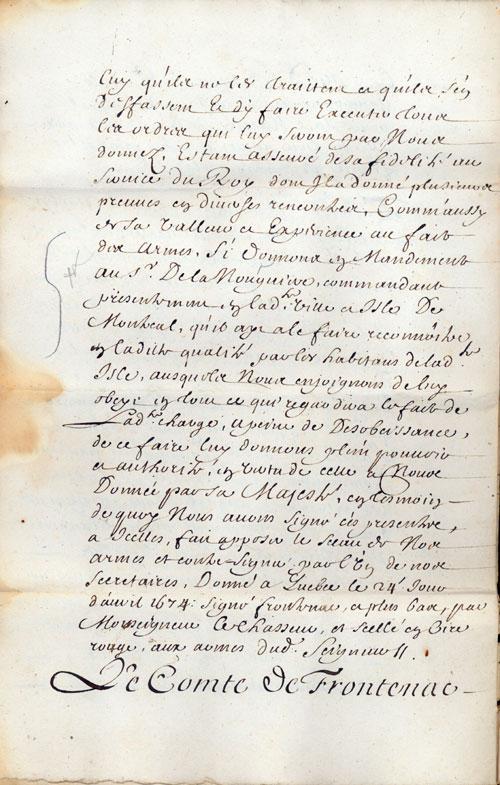 luy qu'ils ne les traittent et qu'ils s'en
deffassent Et d'y faire Executer tous
les ordres qui luy seront par Nous
donnez, Estant asseuré de sa fidelité au
service du Roy dont Il a donné plusieurs
preuves en diverses rencontres, Comm'aussy
de sa valleur et Experience au fait
des armes, Si donnons en Mandement
au Sr. De la Nouguere, commandant
presentement en lad.te ville et Isle De
Montreal, qu'il aye a le faire reconnoistre
en ladite qualité, par les habitans de lad.te
Isle, ausquels Nous enjoignons de luy
obeyr en tout ce qui regardera le fait de
Lad.te charge, a peine de Desobeissance,
de ce faire luy donnons plein pouvoir
et authorité, en vertu de celle a Nous
Donnée par sa Majesté, en tesmoin
de quoy Nous avons signé ces presentes,
a Icelles, fait apposer le sceau de Nos
armes et contre-signer par l'un de nos
secretaires, Donné a Quebec le 24e Jour
d'avril 1674: signé frontenac, et plus bas, par
Monseigneur Le chasseur, et scellé en cire
rouge, aux armes dud. Seigneur //.
Le Comte De Frontenac